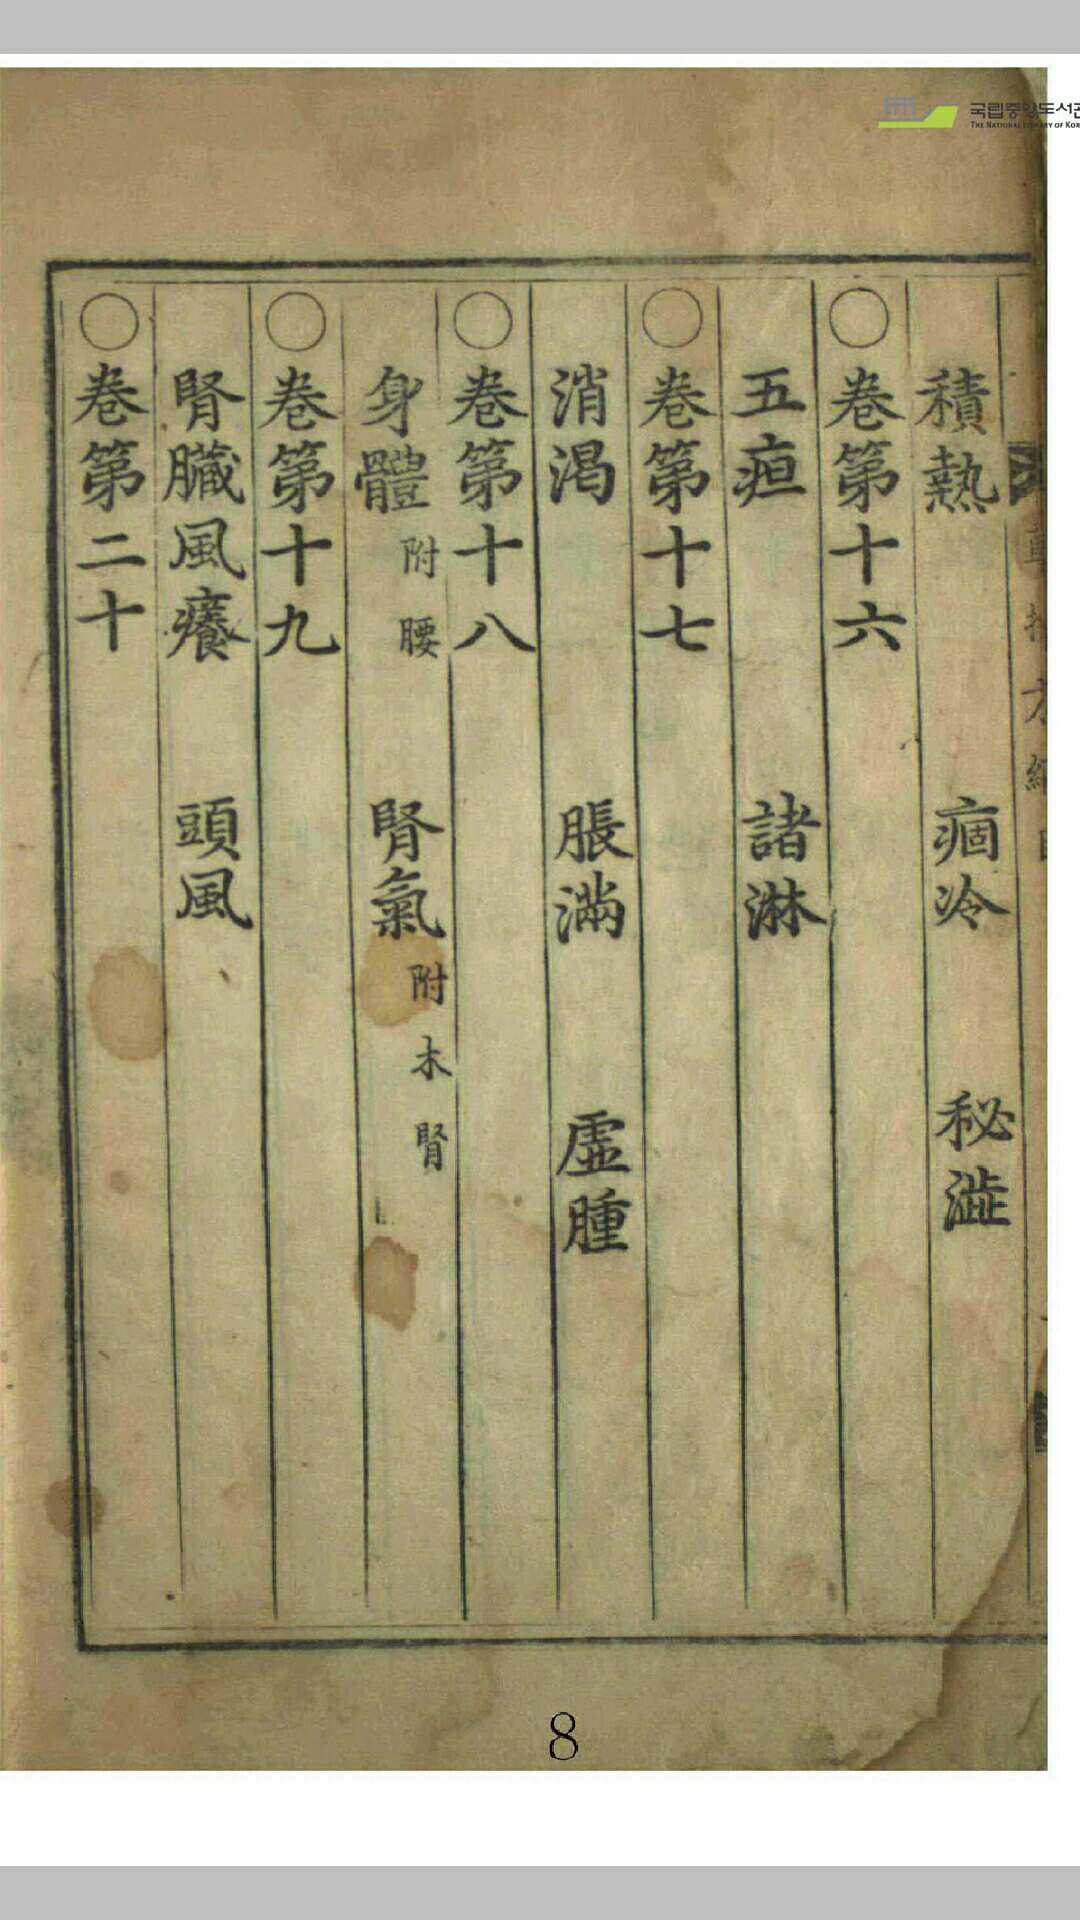 국립중앙도서관
THE NATIONAL LIBRARY OF KOR
積熱 痼冷 秘澁
○卷第十六
五疸 諸淋
○卷第十七
消渴 脹滿 虛腫
○卷第十八
身體附腰 腎氣附木腎
○卷第十九
腎臟風癢 頭風
○卷第二十
8